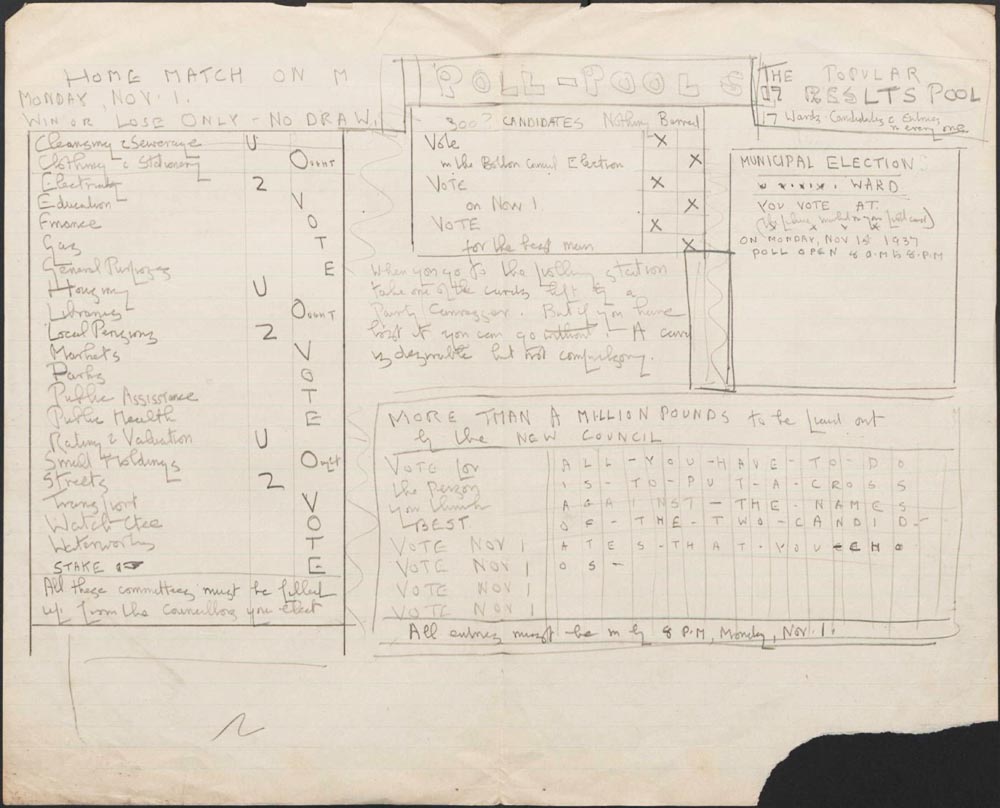 HOME MATCH ON M
MONDAY, NOV. 1.
WIN OR LOSE ONLY - NO DRAW.
Cleansing & Sewerage U
Clothing & Stationery Ought
Electricity 2
Education V
Finance O
Gas T
General Purposes E
Housing U
Libraries Ought
Local Pensions 2
Markets V
Parks O
Public Assistance T
Public Health E
Rating & Valuation U
Small Holdings Ought
Streets 2
Transport V
Watch Ctee O
Waterworks T
STAKE E
All these committees must be filled
up from the Councillors you elect
POLL-POOLS
300? CANDIDATES Nothing Barred
Vote X
in the Bolton Council Election X
VOTE X
on Nov 1 X
VOTE X
for the best man X
When you go to the polling station
take one of the cards left by a
Party Canvasser. But if you have
lost it you can go without. A card
is desirable but not compulsory.
THE POPULAR
17 RESLTS POOL
17 Wards - Candidates &
in every one
MUNICIPAL ELECTION
x x.x.x. WARD
YOU VOTE AT
(the place marked on your poll card)
x x x x
ON MONDAY, NOV 1st 1937
POLL OPEN 8 A.M to 8.P.M
MORE THAN A MILLION POUNDS to be laid out
by the NEW COUNCIL
VOTE for
the person
you think
BEST
VOTE NOV 1
VOTE NOV 1
VOTE NOV 1
VOTE NOV 1
ALL-YOU-HAVE-TO-DO
IS-TO-PUT-A-CROSS
AGAINST-THE-NAMES
OF-THE-TWO-CANDID-
ATES-THAT-YOU-CHO
OS-
All entries must be in by 8 P.M, Monday, Nov. 1.